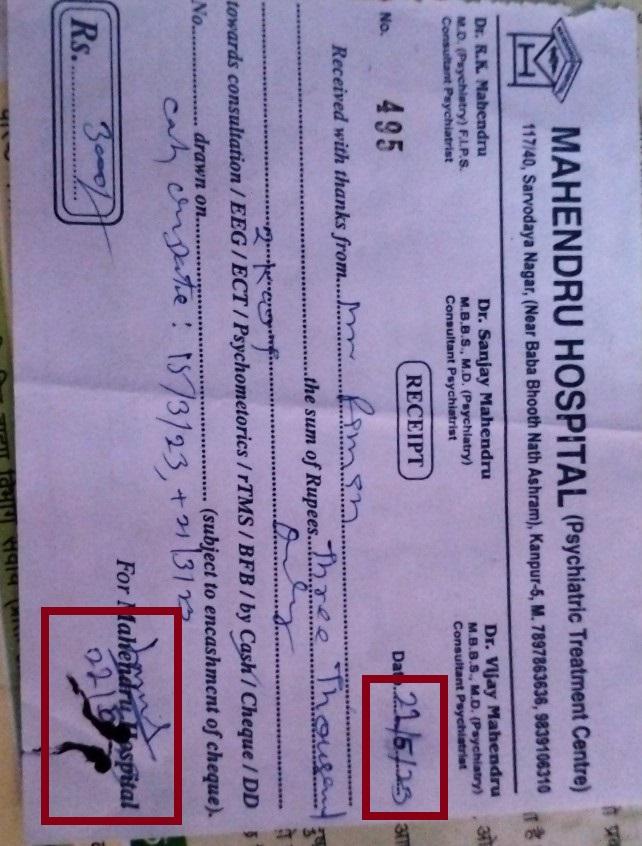 MAHENDRU HOSPITAL (Psychiatric Treatment Centre)
117/40, Sarvodaya Nagar, (Near Baba Bhooth Nath Ashram), Kanpur-5, M. 7897863636, 9839106310
Dr. R.K. Mahendru
M.D. (Psychiatry) F.I.P.S.
Consultant Psychiatrist
Dr. Sanjay Mahendru
M.B.B.S., M.D. (Psychiatry)
Consultant Psychiatrist
Dr. Vijay Mahendru
M.B.B.S., M.D. (Psychiatry)
Consultant Psychiatrist
No. 495
RECEIPT
Date 22/5/23
Received with thanks from
the sum of Rupees Three Thousand
Only
towards consultation / EEG / ECT / Psychometorics / rTMS / BFB / by Cash / Cheque / DD
No. drawn on (subject to encashment of cheque).
15/3/23, + 21/3/23
For Mahendru Hospital
Rs. 3000/-